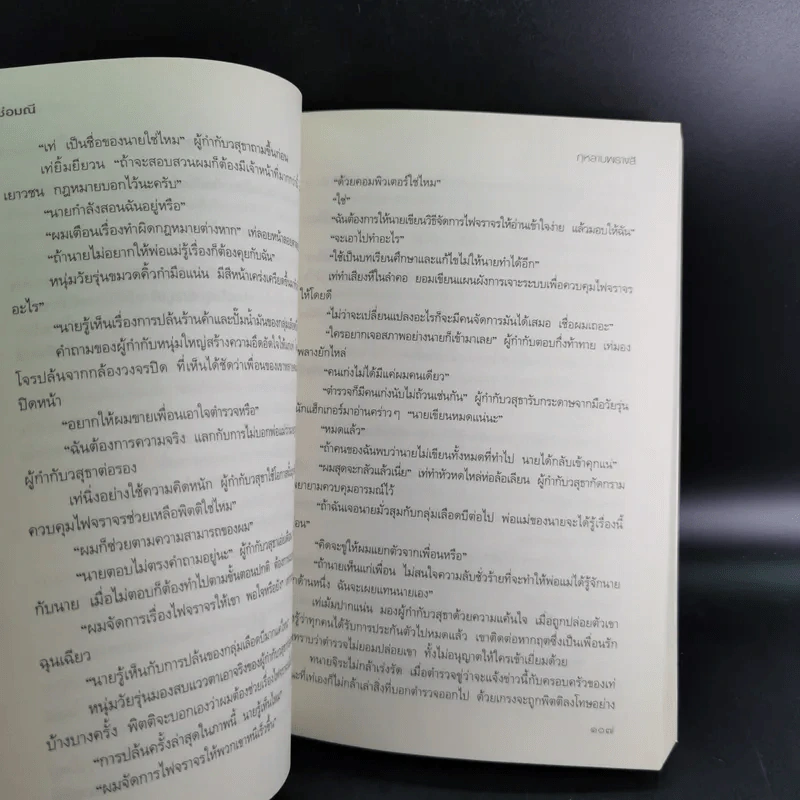 ช่อมณี
“เท่ เป็นชื่อของนายใช่ไหม” ผู้กำกับวสุธาถามขึ้นก่อน
เท่ยิ้มยียวน “ถ้าจะสอบสวนผมก็ต้องมีเจ้าหน้าที่มาก
เยาวชน กฎหมายบอกไว้นะครับ”
“นายกำลังสอนฉันอยู่หรือ”
“ผมเตือนเรื่องทำผิดกฎหมายต่างหาก” เท่ลอยหน้า
“ถ้านายไม่อยากให้พ่อแม่รู้เรื่องก็ต้องคุยกับฉัน”
หนุ่มวัยรุ่นขมวดคิ้วกำมือแน่น มีสีหน้าเคร่งเครียดขึ้น
อะไร”
“นายรู้เห็นเรื่องการปล้นร้านค้าและปั๊มน้ำมันของกลุ่ม
คำถามของผู้กำกับหนุ่มใหญ่สร้างความอึดอัดใจให้
โจรปล้นจากกล้องวงจรปิด ที่เห็นได้ชัดว่าเพื่อนของเขา
ปิดหน้า
“อยากให้ผมขายเพื่อนเอาใจตำรวจหรือ”
“ฉันต้องการความจริง แลกกับการไม่บอกพ่อแม่
ผู้กำกับวสุธาต่อรอง
เท่นิ่งอย่างใช้ความคิดหนัก ผู้กำกับวสุธาใช้โอกาส
ควบคุมไฟจราจรช่วยเหลือพิตติใช่ไหม”
“ผมก็ช่วยตามความสามารถของผม”
“นายตอบไม่ตรงคำถามอยู่นะ” ผู้กำกับวสุธา
กับนาย เมื่อไม่ตอบก็ต้องทำไปตามขั้นตอนปกติ
“ผมจัดการเรื่องไฟจราจรให้เขา พอใจหรือยัง”
ฉุนเฉียว
“นายรู้เห็นกับการปล้นของกลุ่มเลือดบี
หนุ่มวัยรุ่นมองสบแววตาเอาจริงของผู้กำกับวสุธา
บ้างบางครั้ง พิตติจะบอกเองว่าผมต้องช่วยเรื่อง
“การปล้นครั้งล่าสุดในภาพนี้ นายรู้เห็นไหม”
“ผมจัดการไฟจราจรให้พวกเขาหนีเร็วขึ้น”
กุหลาบพรางสี
“ด้วยคอมพิวเตอร์ใช่ไหม”
“ใช่”
“ฉันต้องการให้นายเขียนวิธีจัดการไฟจราจรให้อ่านเข้าใจง่าย แล้วมอบให้ฉัน”
“จะเอาไปทำอะไร”
“ใช้เป็นบทเรียนศึกษาและแก้ไขไม่ให้นายทำได้อีก”
เท่ทำเสียงหึในลำคอ ยอมเขียนแผนผังการเจาะระบบเพื่อควบคุมไฟจราจร
ให้โดยดี
“ไม่ว่าจะเปลี่ยนแปลงอะไรก็จะมีคนจัดการมันได้เสมอ เชื่อผมเถอะ”
“ใครอยากเจอสภาพอย่างนายก็เข้ามาเลย” ผู้กำกับตอบกึ่งท้าทาย เท่มอง
พลางยักไหล่
“คนเก่งไม่ได้มีแค่ผมคนเดียว”
“ตำรวจก็มีคนเก่งนับไม่ถ้วนเช่นกัน” ผู้กำกับวสุธารับกระดาษจากมือวัยรุ่น
นักแฮ็กเกอร์มาอ่านคร่าวๆ “นายเขียนหมดแน่นะ”
“หมดแล้ว”
“ถ้าคนของฉันพบว่านายไม่เขียนทั้งหมดที่ทำไป นายได้กลับเข้าคุกแน่”
“ผมสุดจะกลัวแล้วเนี่ย” เท่ทำหัวหดไหล่ห่อล้อเลียน ผู้กำกับวสุธากัดกราม
พยายามควบคุมอารมณ์ไว้
“ถ้าฉันเจอนายมั่วสุมกับกลุ่มเลือดบีต่อไป พ่อแม่ของนายจะได้รู้เรื่องนี้
“คิดจะขู่ให้ผมแยกตัวจากเพื่อนหรือ”
“ถ้านายเห็นแก่เพื่อน ไม่สนใจความลับชั่วร้ายที่จะทำให้พ่อแม่ได้รู้จักนาย
อีกด้านหนึ่ง ฉันจะเผยแทนนายเอง”
เท่เม้มปากแน่น มองผู้กำกับวสุธาด้วยความแค้นใจ เมื่อถูกปล่อยตัวเขา
รู้ว่าทุกคนได้รับการประกันตัวไปหมดแล้ว เขาติดต่อหากฤตซึ่งเป็นเพื่อนรัก
ทราบว่าตำรวจไม่ยอมปล่อยเขา ทั้งไม่อนุญาตให้ใครเข้าเยี่ยมด้วย
ทนายจิระไม่กล้าเร่งรัด เมื่อตำรวจขู่ว่าจะแจ้งข่าวนี้กับครอบครัวของเท่
ที่เท่เองก็ไม่กล้าเล่าสิ่งที่บอกตำรวจออกไป ด้วยเกรงจะถูกพิตติลงโทษอย่าง
๑๐๗